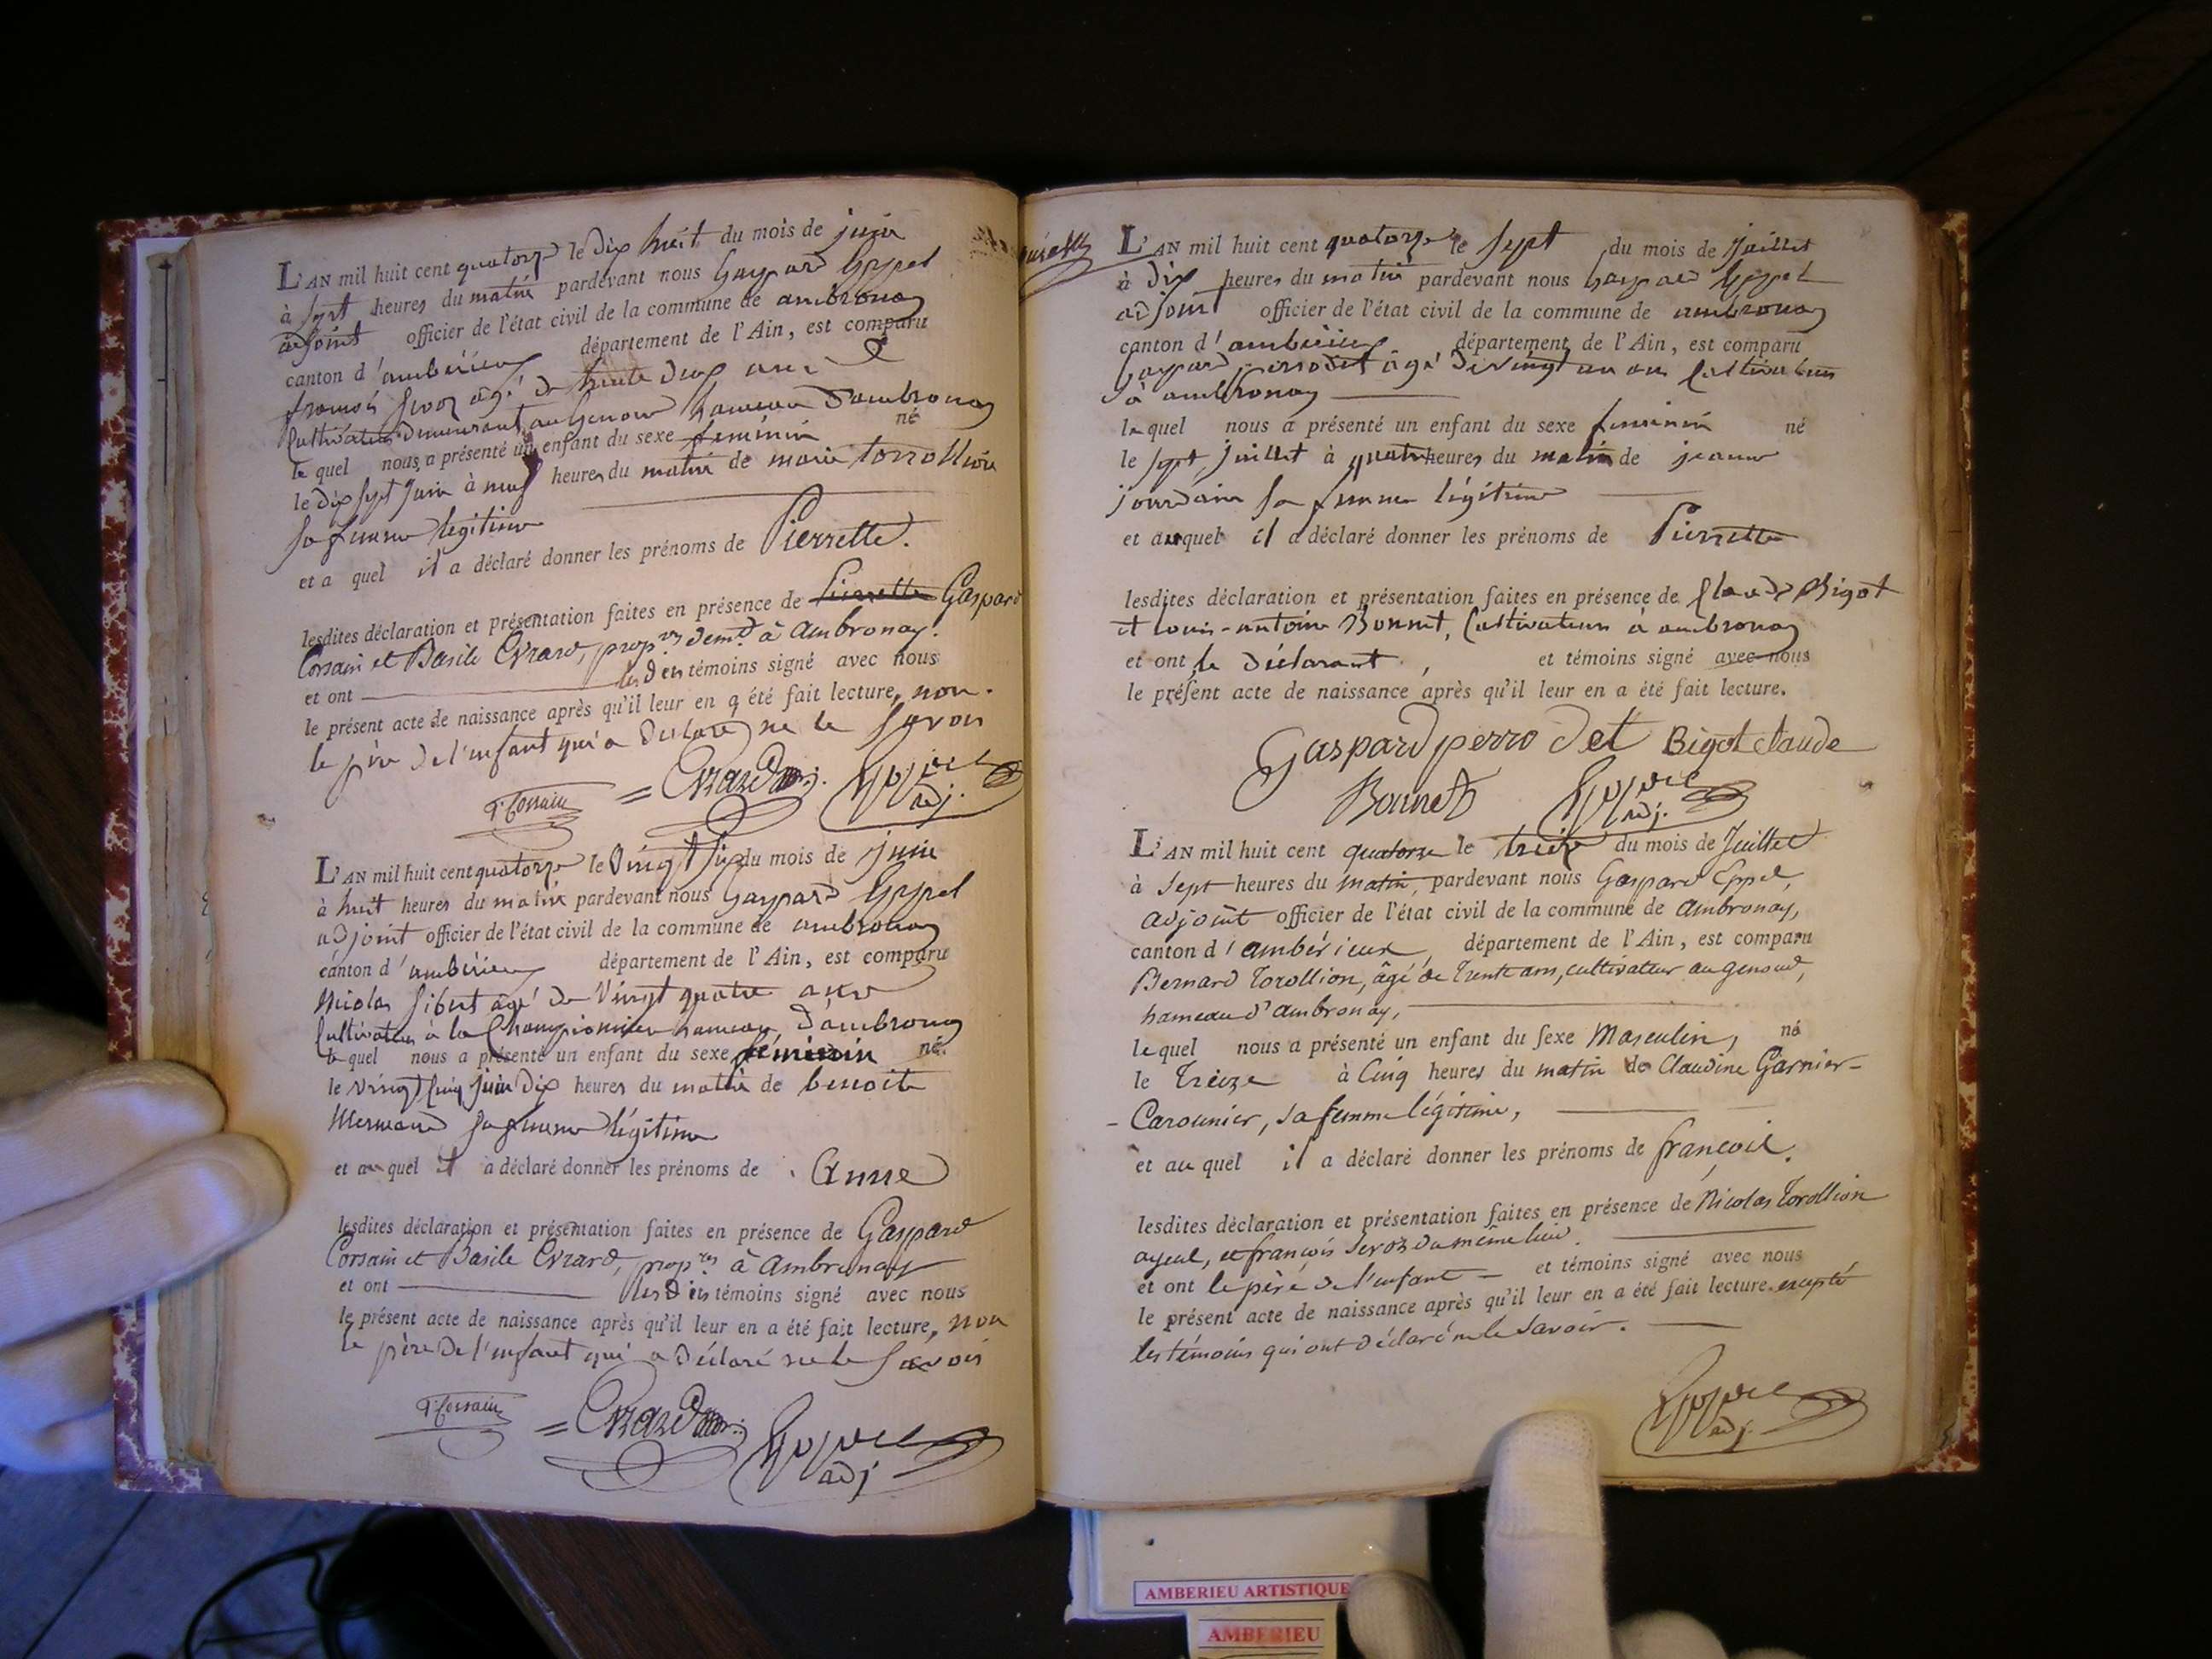 L'AN mil huit cent quatorze le dix huit du mois de juin
à sept heures du matin pardevant nous Gaspard Eppel
adjoint officier de l'état civil de la commune de ambronay
canton d'ambérieux département de l'Ain, est comparu
françois âgé de trente deux ans
Cultivateur demeurant au Genoud hameau d'ambronay
le quel nous a présenté un enfant du sexe feminin né
le dix sept juin à neuf heures du matin de marie torrollion
sa femme légitime
et a quel il a déclaré donner les prénoms de Pierrette.
lesdites déclaration et présentation faites en présence de Pierrette Gaspard
Corsain et Basile Evrard, prop.res dem.t à Ambronay.
et ont les dits témoins signé avec nous
le présent acte de naissance après qu'il leur en a été fait lecture, non
le père de l'enfant qui a déclaré ne le savoir
G. Corsain = Evrard Eppel
adj.
L'AN mil huit cent quatorze le vingt six du mois de juin
à huit heures du matin pardevant nous Gaspard Eppel
adjoint officier de l'état civil de la commune de ambronay
canton d'ambérieux département de l'Ain, est comparu
Nicolas Sibert âgé de vingt quatre ans
Cultivateur à la Championnière hameau d'ambronay
le quel nous a présenté un enfant du sexe féminin né
le vingt cinq juin dix heures du matin de benoite
Mermand sa femme légitime
et au quel il a déclaré donner les prénoms de Anne
lesdites déclaration et présentation faites en présence de Gaspard
Corsain et Basile Evrard, prop.res à Ambronay
et ont les dits témoins signé avec nous
le présent acte de naissance après qu'il leur en a été fait lecture, non
le père de l'enfant qui a déclaré ne le savoir
G. Corsain = Evrard Eppel
adj
L'AN mil huit cent quatorze le sept du mois de Juillet
à dix heures du matin pardevant nous Gaspard Eppel
adjoint officier de l'état civil de la commune de ambronay
canton d'ambérieux département de l'Ain, est comparu
Gaspard perrodet âgé de vingt un an Cultivateur
à ambronay
le quel nous a présenté un enfant du sexe feminin né
le sept juillet à quatre heures du matin de jeanne
jourdain sa femme légitime
et auquel il a déclaré donner les prénoms de Pierrette
lesdites déclaration et présentation faites en présence de Claude Bigot
et louis-antoine Bonnet, Cultivateurs à ambronay
et ont le déclarant, et témoins signé avec nous
le présent acte de naissance après qu'il leur en a été fait lecture.
Gaspard perrodet Bigot claude
Bonnet Eppel
adj.
L'AN mil huit cent quatorze le treize du mois de Juillet
à Sept heures du matin, pardevant nous Gaspard Eppel,
adjoint officier de l'état civil de la commune de Ambronay,
canton d'ambérieux, département de l'Ain, est comparu
Bernard Torollion, âgé de Trente ans, cultivateur au genoud,
hameau d'ambronay,
le quel nous a présenté un enfant du sexe Masculin, né
le Treize à Cinq heures du matin de Claudine Garnier-
-Carounier, sa femme légitime,
et au quel il a déclaré donner les prénoms de françois.
lesdites déclaration et présentation faites en présence de Nicolas Torollion
ayeul, et françois Servoz du même lieu.
et ont le père de l'enfant - et témoins signé avec nous
le présent acte de naissance après qu'il leur en a été fait lecture. excepté
les témoins qui ont déclaré ne le Savoir.
Eppel
adj.
AMBERIEU ARTISTIQUE
AMBERIEU